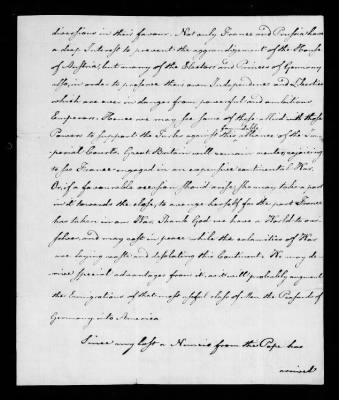 diversions in their favour. Not only France and Prussia have
a deep Interest to prevent the aggrandizement of the House
of Austria, but many of the Electors and Princes of Germany
also, in order to preserve their own Independence and Liberties
which are ever in danger from powerful and ambitious
Emperors. Hence we may see some of these allied with those
Powers to support the Turks against this alliance of the Im-
perial Courts. Great Britain will remain neuter, rejoicing
to see France engaged in an expensive continental War.
Or, if a favourable occasion shou'd arise, she may take a part
in it towards the close, to avenge herself for the part France
has taken in our War. Thank God we have a World to our-
selves, and may rest in peace while the calamities of War
are laying waste and desolating this Continent. We may de-
rive special advantages from it, as it will probably augment
the Emigrations of that most useful class of Men the Peasants of
Germany into America
Since my last a Nuncio from the Pope has
arrived